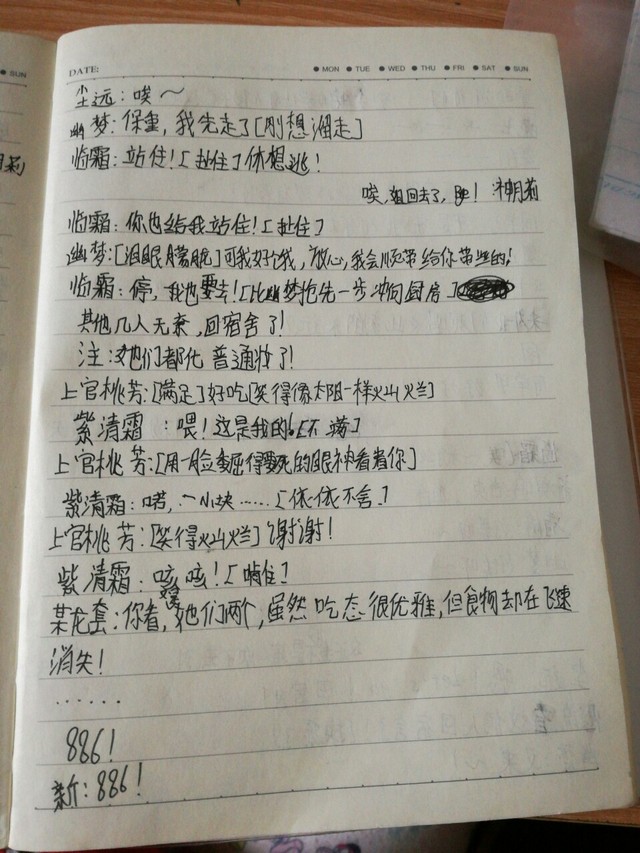 DATE:
MON TUE WED THU FRI SAT SUN
SUN
尘远:唉～
幽梦:保重,我先走了[刚想溜走]
临霜:站住![赴住]休想逃!
唉,姐回去了,
临霜:你也给我站住![赴住]
幽梦:[泪眼朦胧]可我好饿,放心,我会顺带给你带些的!
临霜:停,我也要去![比幽梦抢先一步冲向厨房]
其他几人无奈,回宿舍了!
注:她们都化普通妆了!
上官桃芳:[满足]好吃[笑得像太阳一样灿烂]
紫清霜:喂!这是我的![不满]
上官桃芳:[用一脸委屈得要死的眼神看着你]
紫清霜:喏,一小块……[依依不舍]
上官桃芳:[笑得灿烂]谢谢!
紫清霜:咳咳![噎住]
某龙套:你看,她们两个,虽然吃态很优雅,但食物却在飞速
消失!
……
886!
新:886!